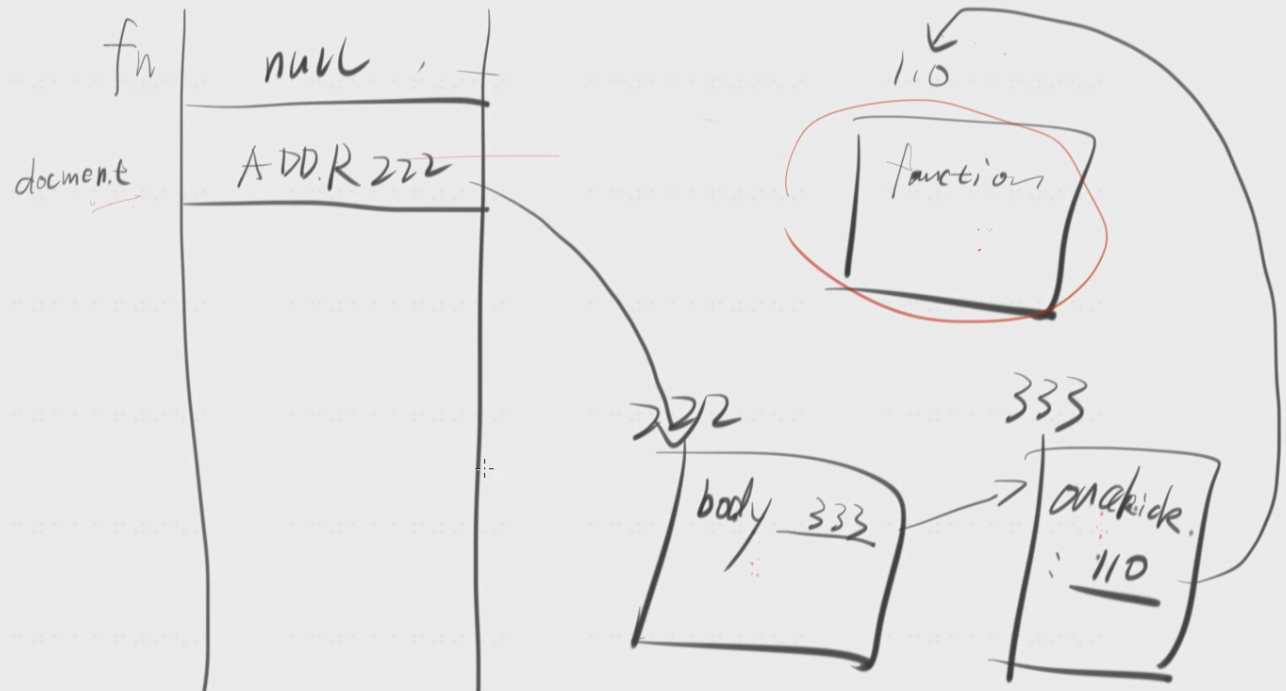 fn null
docment ADDR 222
110
function
222
body 333
333
onclick
: 110